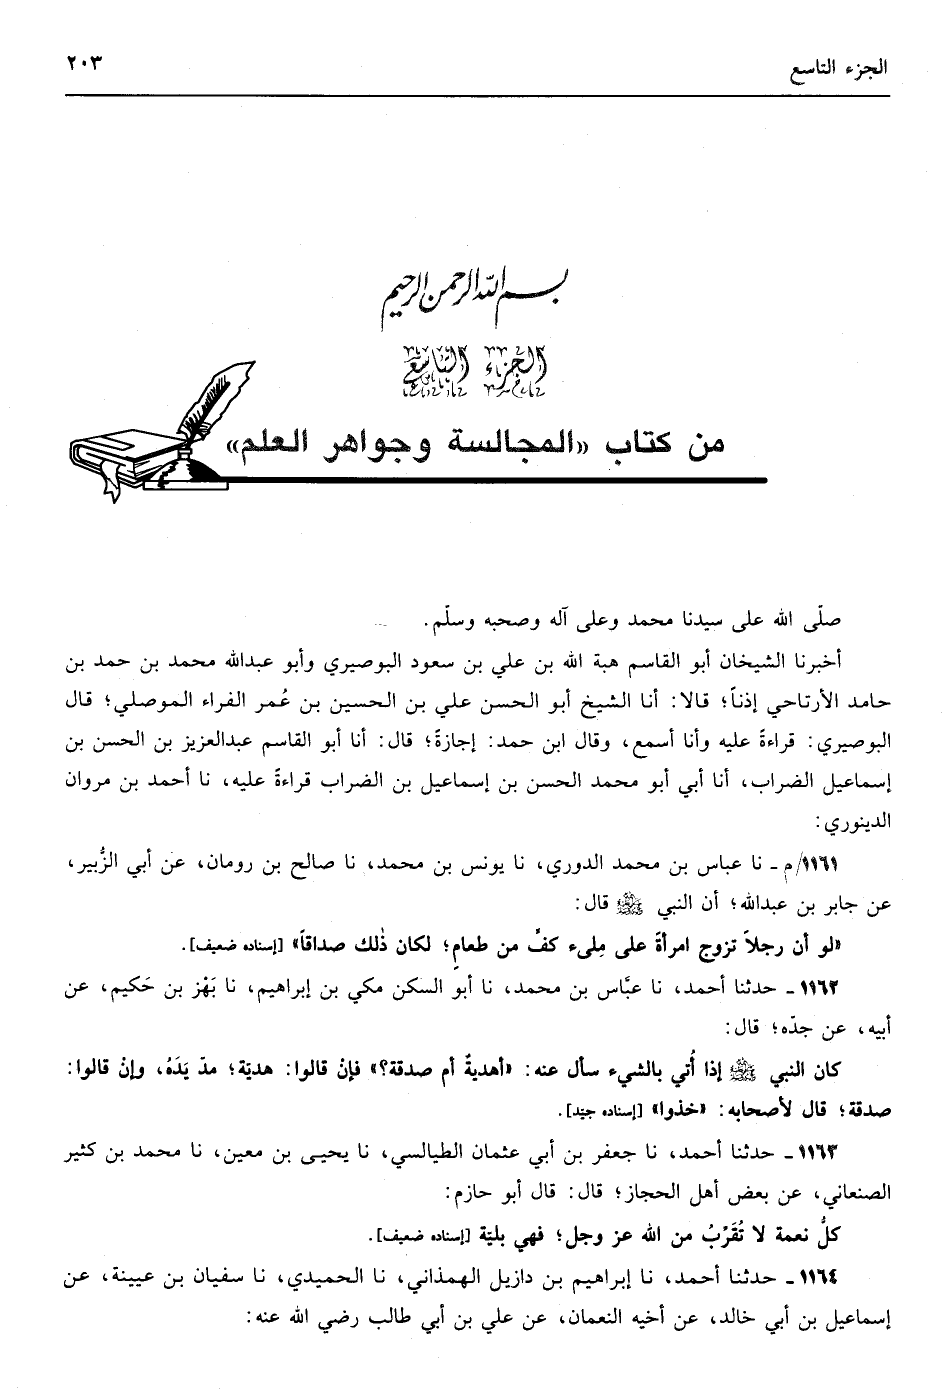 الجزء التاسع
٢٠٣
بسم الله الرحمن الرحيم
الجزء التاسع
من كتاب «المجالسة وجواهر العلم»
صلّى الله على سيدنا محمد وعلى آله وصحبه وسلّم.
أخبرنا الشيخان أبو القاسم هبة الله بن علي بن سعود البوصيري وأبو عبدالله محمد بن حمد بن
حامد الأرتاحي إذناً؛ قالا: أنا الشيخ أبو الحسن علي بن الحسين بن عُمر الفراء الموصلي؛ قال
البوصيري: قراءةً عليه وأنا أسمع، وقال ابن حمد: إجازةً؛ قال: أنا أبو القاسم عبدالعزيز بن الحسن بن
إسماعيل الضراب، أنا أبي أبو محمد الحسن بن إسماعيل بن الضراب قراءةً عليه، نا أحمد بن مروان
الدينوري:
١١٦١/م ـ نا عباس بن محمد الدوري، نا يونس بن محمد، نا صالح بن رومان، عن أبي الزُّبير،
عن جابر بن عبدالله؛ أن النبي ﷺ قال:
«لو أن رجلاً تزوج امرأةً على مِلىء كفٍّ من طعامٍ؛ لكان ذٰلك صداقاً» [إسناده ضعيف].
١١٦٢ ـ حدثنا أحمد، نا عبَّاس بن محمد، نا أبو السكن مكي بن إبراهيم، نا بَهْز بن حَكيم، عن
أبيه، عن جدّه؛ قال:
كان النبي ﷺ إذا أُتي بالشيء سأل عنه: «أهديةٌ أم صدقة؟» فإنْ قالوا: هديّة؛ مدّ يَدَهُ، وإنْ قالوا:
صدقة؛ قال لأصحابه: «خذوا» [إسناده جيّد].
١١٦٣ ـ حدثنا أحمد، نا جعفر بن أبي عثمان الطيالسي، نا يحيى بن معين، نا محمد بن كثير
الصنعاني، عن بعض أهل الحجاز؛ قال: قال أبو حازم:
كلُّ نعمة لا تُقَرْبُ من الله عز وجل؛ فهي بليّة [إسناده ضعيف].
١١٦٤ ـ حدثنا أحمد، نا إبراهيم بن دازيل الهمذاني، نا الحميدي، نا سفيان بن عيينة، عن
إسماعيل بن أبي خالد، عن أخيه النعمان، عن علي بن أبي طالب رضي الله عنه: